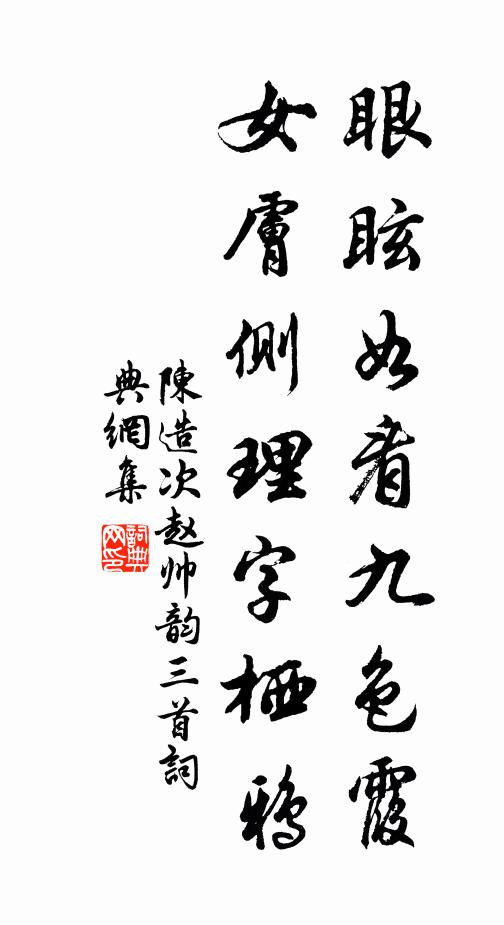 眼眩如看九色霞
女膚側理字栖鴉
陳造次赵帅韵三首詞
典網集
詞典網印